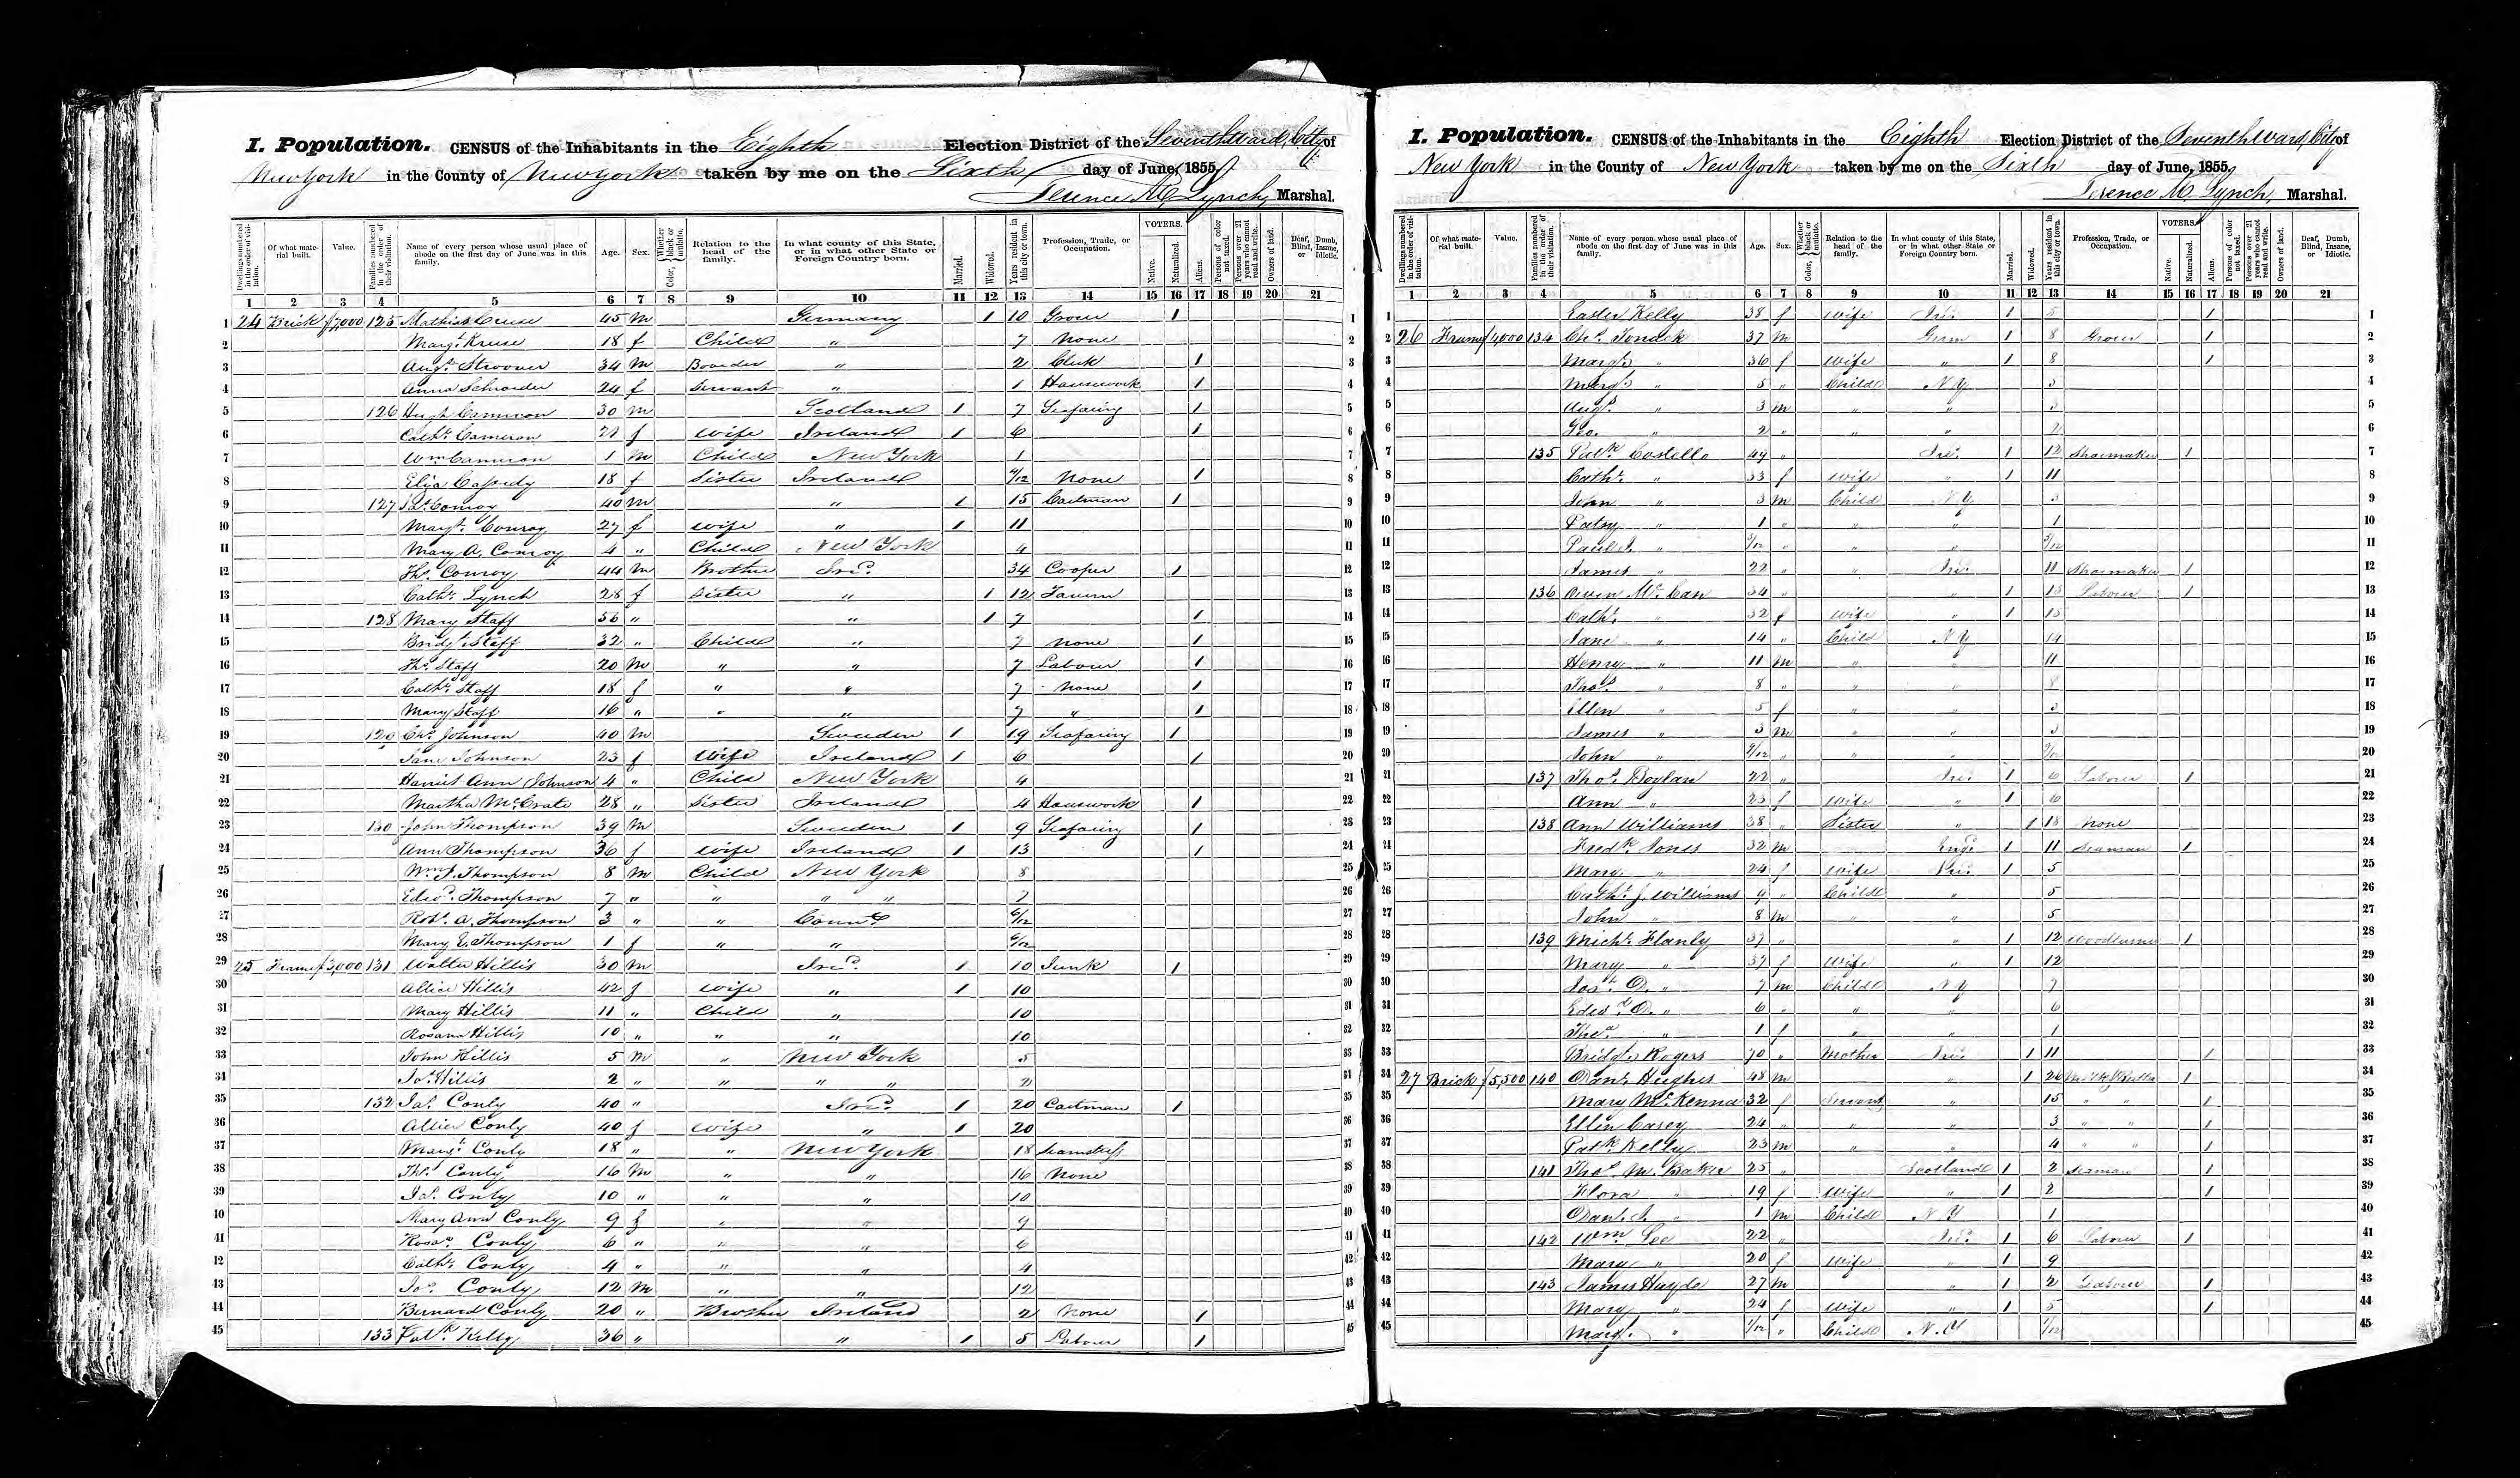 I. Population. CENSUS of the Inhabitants in the Eighth Election District of the Seventh Ward, City of
New York in the County of New York taken by me on the Sixth day of June, 1855,
Terence McLynch, Marshal.
Dwellings numbered in the order of visitation. Of what material built. Value. Families numbered in the order of their visitation. Name of every person whose usual place of abode on the first day of June was in this family. Age. Sex. Color, Whether black or mulatto. Relation to the head of the family. In what county of this State, or in what other State or Foreign Country born. Married. Widowed. Years resident in this city or town. Profession, Trade, or Occupation. VOTERS. Native. Naturalized. Aliens. Persons of color not taxed. Persons over 21 years who cannot read and write. Owners of land. Deaf, Dumb, Blind, Insane, or Idiotic.
1 2 3 4 5 6 7 8 9 10 11 12 13 14 15 16 17 18 19 20 21
1 24 Brick 7,000 125 Mathias Cruse 45 M Germany 1 10 Grocer 1 1
2 Margt. Kruse 18 f Child " 7 None 2
3 Augt. Stroover 34 M Boarder " 2 Clerk 1 3
4 Anna Schroeder 24 f Servant " 1 Housework 1 4
5 126 Hugh Cameron 30 M Scotland 1 7 Seafaring 1 5
6 Cathe. Cameron f wife Ireland 1 6 1 6
7 Wm Cameron 1 M Child New York 1 7
8 Eliza Cassidy 18 f Sister Ireland /12 None 1 8
9 127 Conroy 40 M " 1 15 Cartman 1 9
10 Margt. Conroy 27 f wife " 1 11 10
11 Mary A. Conroy 4 " Child New York 4 11
12 Ths. Conroy 44 M Brother Ired. 34 Cooper 1 12
13 Cathe. Lynch 28 f Sister " 1 12 Tavern 13
14 128 Mary Staff 56 " " 1 7 1 14
15 Bridgt. Staff 32 " Child " 7 None 1 15
16 Ths. Staff 20 M " " 7 Labourer 1 16
17 Cathe. Staff 18 f " " 7 None 1 17
18 Mary Staff 16 " " " 7 " 1 18
19 129 Chs. Johnson 40 M Sweeden 1 19 Seafaring 1 19
20 Jane Johnson 23 f Wife Ireland 1 6 1 20
21 Harriet Ann Johnson 4 " Child New York 4 21
22 Martha McCrate 28 " Sister Ireland 4 Housework 1 22
23 130 John Thompson 39 M Sweeden 1 9 Seafaring 1 23
24 Ann Thompson 36 f wife Ireland 1 13 1 24
25 Wm J. Thompson 8 M Child New York 8 25
26 Edwd. Thompson 7 " " " " 7 26
27 Robt. A. Thompson 3 " " Connt 6/12 27
28 Mary E. Thompson 1 f " " 6/12 28
29 25 Frame 3,000 131 Walter Hillis 30 M Ired. 1 10 Junk 1 29
30 Allice Hillis 42 f wife " 1 10 30
31 Mary Hillis 11 " Child " 10 31
32 Rosana Hillis 10 " " " 10 32
33 John Hillis 5 M " New York 5 33
34 Jos. Hillis 2 " " " " 2 34
35 132 Jas. Conly 40 " Ired. 1 20 Cartman 1 35
36 Allice Conly 40 f wife " 1 20 36
37 Margt. Conly 18 " " New York 18 Seamstress 37
38 Ths. Conly 16 M " " 16 None 38
39 Jas. Conly 10 " " " 10 39
40 Mary Ann Conly 9 f " " 9 40
41 Rosa. Conly 6 " " " 6 41
42 Cathe. Conly 4 " " " 4 42
43 Jos. Conly 12 M " " 12 43
44 Bernard Conly 20 " Brother Ireland 2 None 1 44
45 133 Patk. Kelly 36 " " 1 5 Labourer 1 45
I. Population. CENSUS of the Inhabitants in the Eighth Election District of the Seventh Ward, City of
New York in the County of New York taken by me on the Sixth day of June, 1855,
Terence McLynch, Marshal.
Dwellings numbered in the order of visitation. Of what material built. Value. Families numbered in the order of their visitation. Name of every person whose usual place of abode on the first day of June was in this family. Age. Sex. Color, Whether black or mulatto. Relation to the head of the family. In what county of this State, or in what other State or Foreign Country born. Married. Widowed. Years resident in this city or town. Profession, Trade, or Occupation. VOTERS. Native. Naturalized. Aliens. Persons of color not taxed. Persons over 21 years who cannot read and write. Owners of land. Deaf, Dumb, Blind, Insane, or Idiotic.
1 2 3 4 5 6 7 8 9 10 11 12 13 14 15 16 17 18 19 20 21
1 Easter Kelly 38 f wife Ire. 1 5 1 1
2 26 Frame 134 Chs. 37 M Germ 1 8 Grocer 1 2
3 Margt. " 36 f wife " 1 8 1 3
4 Margt. " 5 " Child N Y 5 4
5 Augt. " 3 M " " 3 5
6 Geo. " 2 " " " 2 6
7 135 Patk Costello 49 " Ire. 1 12 Shoemaker 1 7
8 Cathe. " 33 f wife " 1 11 8
9 " 3 M Child N Y 3 9
10 Patsy " 1 " " " 1 10
11 Paul J. " 3/12 " " " 3/12 11
12 James " 22 " " Ire. 11 Shoemaker 1 12
13 136 Owen McCan 34 " " 1 15 Laborer 1 13
14 Cathe. " 32 f wife " 1 15 14
15 Jane " 14 " Child N Y 14 15
16 Henry " 11 M " " 11 16
17 Thos. " 8 " " " 8 17
18 Ellen " 5 f " " 5 18
19 James " 3 M " " 3 19
20 John " /12 " " " /12 20
21 137 Thos. Boylan 22 " Ire. 1 6 Laborer 1 21
22 Ann " 23 f wife " 1 6 22
23 138 Ann Williams 38 " Sister " 1 18 None 23
24 Fredk. Jones 32 M Engd. 1 11 Seaman 1 24
25 Mary " 24 f wife Ire. 1 5 25
26 Cathe. J. Williams 9 " Child " 5 26
27 John " 8 M " " 5 27
28 139 Michl. Flanly 37 " " 1 12 1 28
29 Mary " 37 f Wife " 1 12 29
30 Jos. D. " 7 M Child N Y 7 30
31 Edwd. D. " 6 " " " 6 31
32 " 1 f " " 1 32
33 Bridgt. Rogers 70 " Mother Ire. 1 11 1 33
34 27 Brick 5,500 140 Danl. Hughes 48 M " 1 26 1 34
35 Mary McKenna 32 f Servant " 15 " " 1 35
36 Ellen Casey 24 " " " 3 " " 1 36
37 Patk Kelly 23 M " " 4 " " 1 37
38 141 Thos. M. Baker 25 " Scotland 1 2 Seaman 1 38
39 Flora " 19 f wife " 1 2 1 39
40 Danl. J. " 1 M Child N. Y 1 40
41 142 Wm. Lee 22 " Ire. 1 6 Laborer 1 41
42 Mary " 20 f wife " 1 9 42
43 143 James Hayde 27 M " 1 2 Laborer 1 43
44 Mary " 24 f wife " 1 5 1 44
45 Margt. " 1/12 " Child N. Y 1/12 45